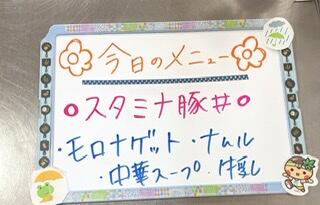 今日のメニュー
○スタミナ豚丼○
・モロナゲット・ナムル
・中華スープ・牛乳